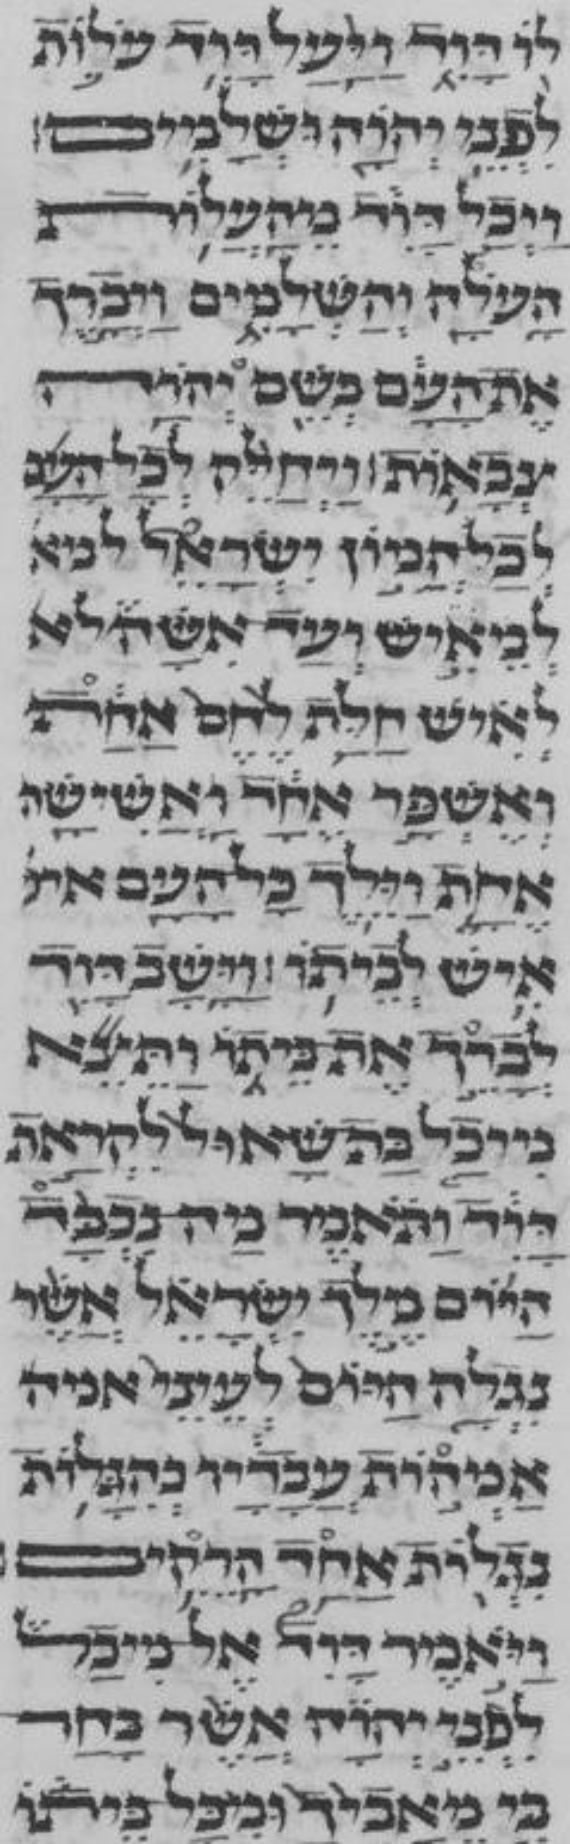 לו דוד ויעל דוד עלות
לפני יהוה ושלמים׃
ויכל דוד מהעלות
העלה והשלמים ויברך
את העם בשם יהוה
צבאות׃ ויחלק לכל העם
לכל המון ישראל למא
למאיש ועד אשה לא
לאיש חלת לחם אחת
ואשפר אחד ואשישה
אחת וילך כל העם אי
איש לביתו׃ וישב דוד
לברך את ביתו ותצא
מיכל בת שאול לקראת
דוד ותאמר מה נכבד
היום מלך ישראל אשר
נגלה היום לעיני אמה
אמהות עבדיו כהגלות
נגלות אחד הרקים׃
ויאמר דוד אל מיכל
לפני יהוה אשר בחר
בי מאביך ומכל ביתו